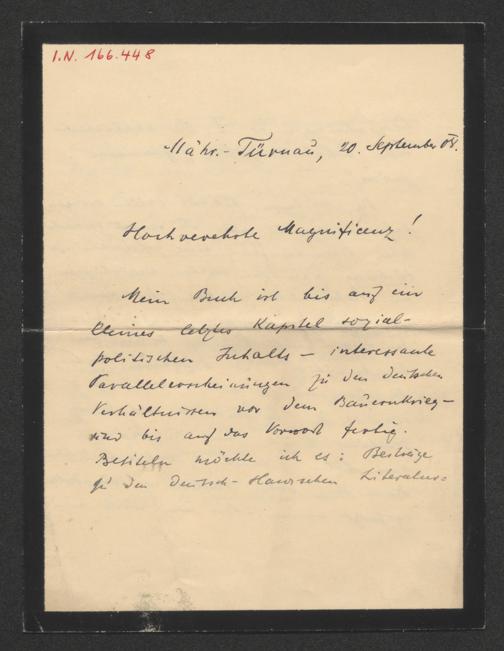 I.N. 166.448
Mähr.-Türnau, 20. September 08.
Hochverehrte Magnifizenz!
Mein Buch ist bis auf ein
kleines letztes Kapitel sozial-
politischen Inhalts – interessante
Parallelerscheinungen zu den deutschen
Verhältnissen vor dem Bauernkrieg –
und bis auf das Vorwort fertig.
Betiteln möchte ich es: Beiträge
zu den deutsch-slawischen Literatur=